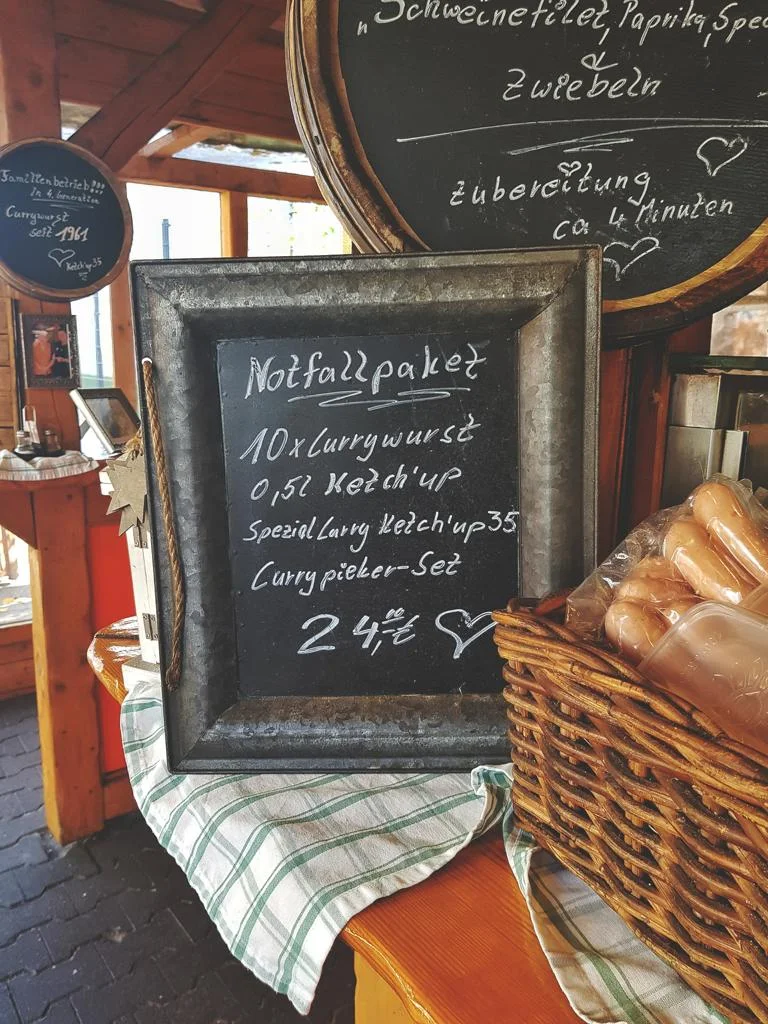 „Schweinefilet, Paprika, Spec
Zwiebeln
Zubereitung
ca 4 Minuten
Familienbetrieb!!!
in 4. Generation
Currywurst
seit 1961
Ketch'up 35
Notfallpaket
10xCurrywurst
0,5l Ketch'up
Spezial Curry Ketch'up 35
Currypieker-Set
24,00€